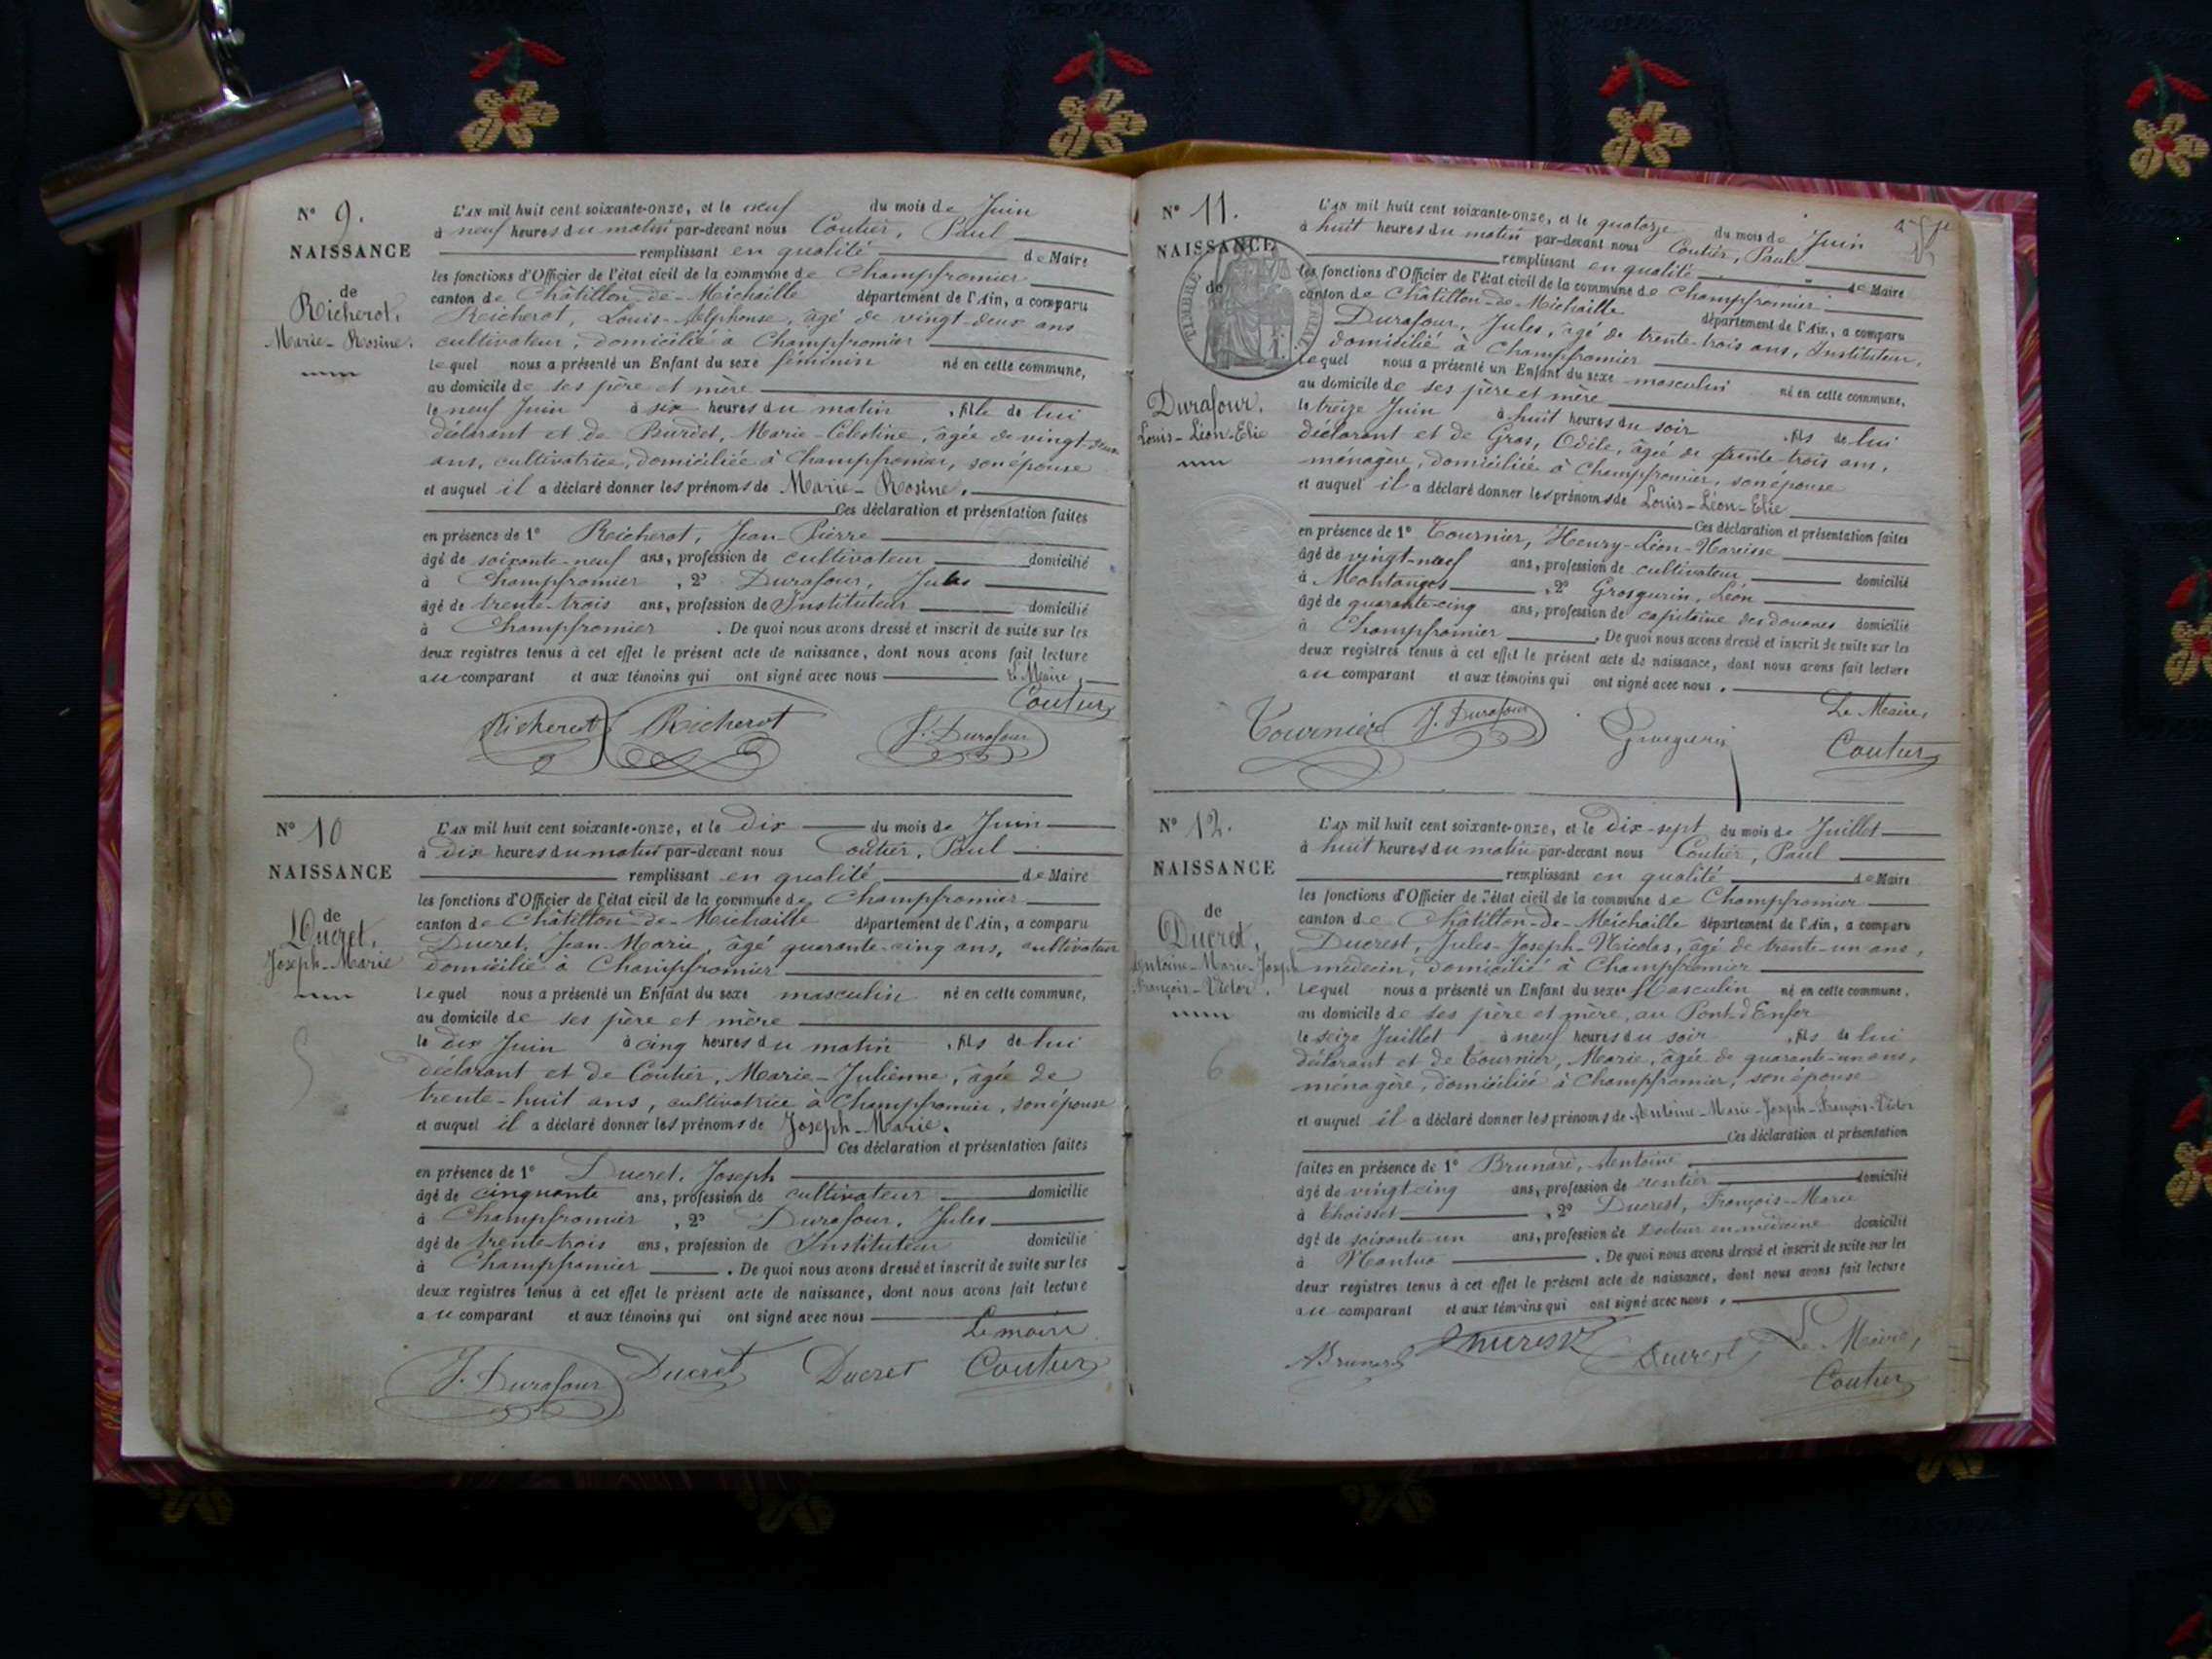 N° 9.
NAISSANCE
de
Richerot,
Marie-Rosine.
L'AN mil huit cent soixante-onze, et le neuf du mois de Juin
à neuf heures du matin par-devant nous Coutier, Paul
remplissant en qualité de Maire
les fonctions d'Officier de l'état civil de la commune de Champfromier
canton de Châtillon-de-Michaille département de l'Ain, a comparu
Richerot, Louis-Alphonse, âgé de vingt-deux ans
cultivateur, domicilié à Champfromier
lequel nous a présenté un Enfant du sexe féminin né en cette commune,
au domicile de ses père et mère
le neuf Juin à six heures du matin, fille de lui
déclarant et de Burdet, Marie-Célestine, âgée de vingt-deux
ans, cultivatrice, domiciliée à Champfromier, son épouse
et auquel il a déclaré donner les prénoms de Marie-Rosine.
Ces déclaration et présentation faites
en présence de 1° Richerot, Jean-Pierre
âgé de soixante-neuf ans, profession de cultivateur domicilié
à Champfromier, 2° Durafour, Jules
âgé de trente-trois ans, profession de Instituteur domicilié
à Champfromier. De quoi nous avons dressé et inscrit de suite sur les
deux registres tenus à cet effet le présent acte de naissance, dont nous avons fait lecture
au comparant et aux témoins qui ont signé avec nous Le Maire,
Coutier
Richerot Richerot J. Durafour
N° 10
NAISSANCE
de
Ducret,
Joseph-Marie
L'AN mil huit cent soixante-onze, et le Dix du mois de Juin
à dix heures du matin par-devant nous Coutier, Paul
remplissant en qualité de Maire
les fonctions d'Officier de l'état civil de la commune de Champfromier
canton de Châtillon-de-Michaille département de l'Ain, a comparu
Ducret, Jean-Marie, âgé quarante-cinq ans, cultivateur
domicilié à Champfromier
lequel nous a présenté un Enfant du sexe masculin né en cette commune,
au domicile de ses père et mère
le dix Juin à cinq heures du matin, fils de lui
déclarant et de Coutier, Marie-Julienne, âgée de
trente-huit ans, cultivatrice à Champfromier, son épouse
et auquel il a déclaré donner les prénoms de Joseph-Marie.
Ces déclaration et présentation faites
en présence de 1° Ducret, Joseph
âgé de cinquante ans, profession de cultivateur domicilié
à Champfromier, 2° Durafour, Jules
âgé de trente-trois ans, profession de Instituteur domicilié
à Champfromier. De quoi nous avons dressé et inscrit de suite sur les
deux registres tenus à cet effet le présent acte de naissance, dont nous avons fait lecture
au comparant et aux témoins qui ont signé avec nous
Le maire
J. Durafour Ducret Ducret Coutier
N° 11.
NAISSANCE
de
TIMBRE
Durafour,
Louis-Léon-Elie
L'AN mil huit cent soixante-onze, et le quatorze du mois de Juin
à huit heures du matin par-devant nous Coutier, Paul
remplissant en qualité de Maire
les fonctions d'Officier de l'état civil de la commune de Champfromier
canton de Châtillon-de-Michaille département de l'Ain, a comparu
Durafour, Jules, âgé de trente-trois ans, Instituteur,
domicilié à Champfromier
lequel nous a présenté un Enfant du sexe masculin né en cette commune,
au domicile de ses père et mère
le treize Juin à huit heures du soir, fils de lui
déclarant et de Gras, Odile, âgée de trente-trois ans,
ménagère, domiciliée à Champfromier, son épouse
et auquel il a déclaré donner les prénoms de Louis-Léon-Elie
Ces déclaration et présentation faites
en présence de 1° Tournier, Henry-Léon-Narcisse
âgé de vingt-neuf ans, profession de cultivateur domicilié
à Montanges, 2° Grosgurin, Léon
âgé de quarante-cinq ans, profession de capitaine des douanes domicilié
à Champfromier. De quoi nous avons dressé et inscrit de suite sur les
deux registres tenus à cet effet le présent acte de naissance, dont nous avons fait lecture
au comparant et aux témoins qui ont signé avec nous.
Le Maire,
Tournier J. Durafour Grosgurin Coutier
N° 12.
NAISSANCE
de
Ducrest,
Antoine-Marie-Joseph
François-Victor.
6
L'AN mil huit cent soixante-onze, et le Dix-sept du mois de Juillet
à huit heures du matin par-devant nous Coutier, Paul
remplissant en qualité de Maire
les fonctions d'Officier de l'état civil de la commune de Champfromier
canton de Châtillon-de-Michaille département de l'Ain, a comparu
Ducrest, Jules-Joseph-Nicolas, âgé de trente-un ans,
médecin, domicilié à Champfromier
lequel nous a présenté un Enfant du sexe Masculin né en cette commune,
au domicile de ses père et mère, au Pont-d'Enfer
le seize Juillet à neuf heures du soir, fils de lui
déclarant et de Tournier, Marie, âgée de quarante-un ans,
ménagère, domiciliée à Champfromier, son épouse
et auquel il a déclaré donner les prénoms de Antoine-Marie-Joseph-François-Victor
Ces déclaration et présentation
faites en présence de 1° Brunard, Antoine
âgé de vingt-cinq ans, profession de rentier domicilié
à Thoissey, 2° Ducrest, François-Marie
âgé de soixante-un ans, profession de Docteur en médecine domicilié
à Nantua. De quoi nous avons dressé et inscrit de suite sur les
deux registres tenus à cet effet le présent acte de naissance, dont nous avons fait lecture
au comparant et aux témoins qui ont signé avec nous.
Le Maire,
A Brunard Ducrest Ducrest
Coutier